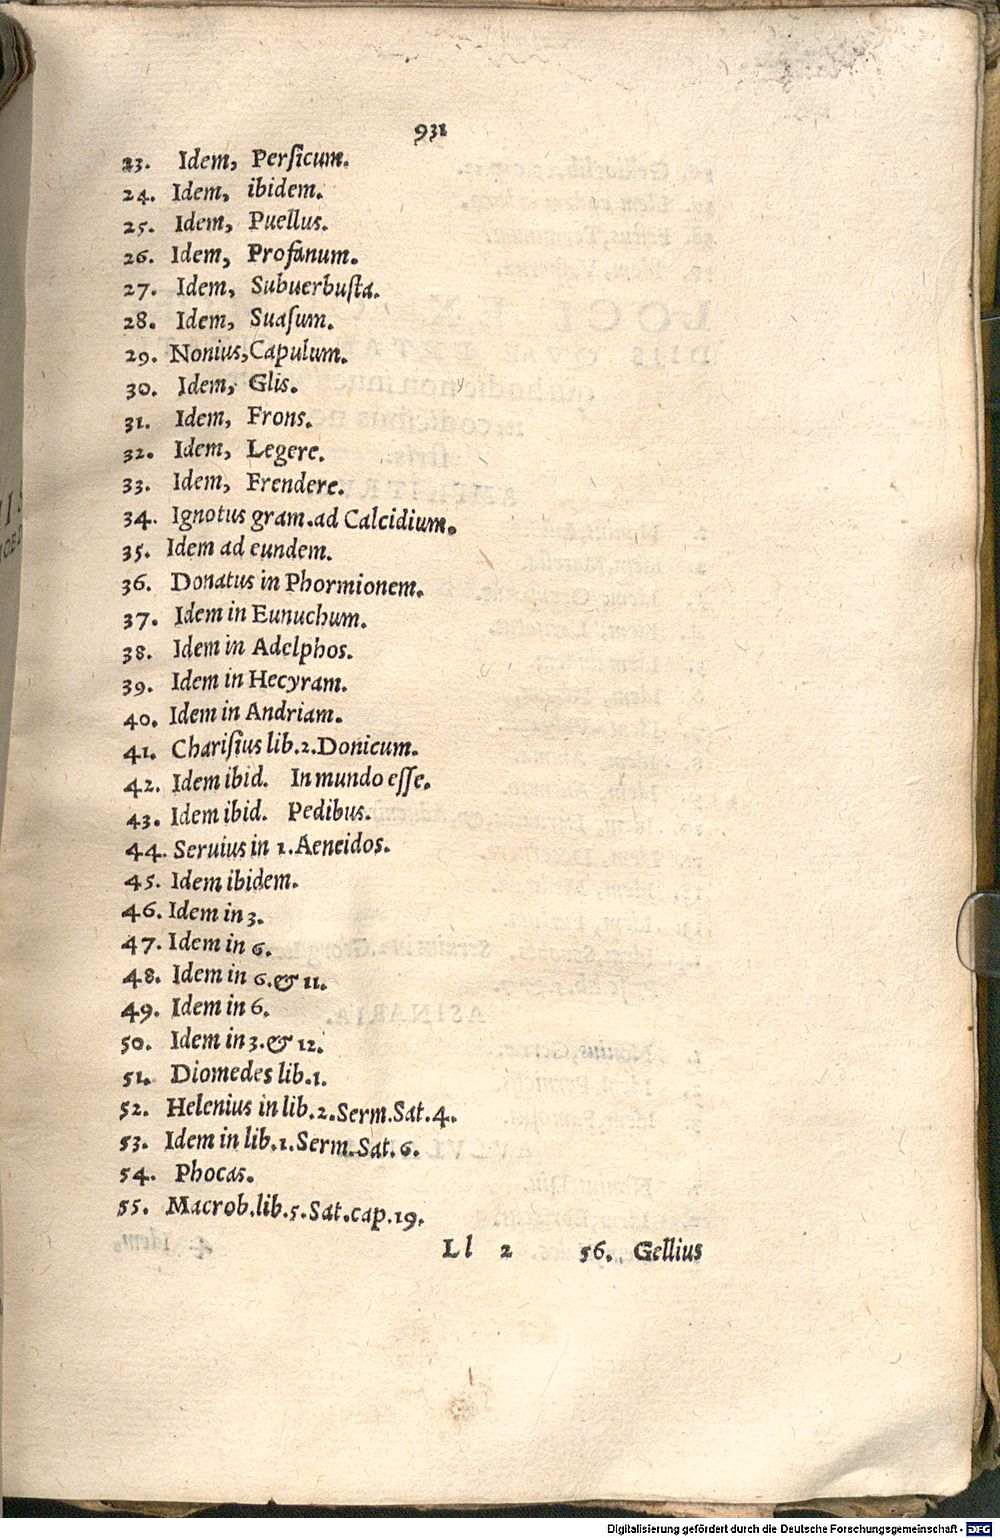 931
23. Idem, Perſicum.
24. Idem, ibidem.
25. Idem, Puellus.
26. Idem, Profanum.
27. Idem, Subuerbuſta.
28. Idem, Suaſum.
29. Nonius, Capulum.
30. Idem, Glis.
31. Idem, Frons.
32. Idem, Legere.
33. Idem, Frendere.
34. Ignotus gram. ad Calcidium.
35. Idem ad eundem.
36. Donatus in Phormionem.
37. Idem in Eunuchum.
38. Idem in Adelphos.
39. Idem in Hecyram.
40. Idem in Andriam.
41. Chariſius lib. 2. Donicum.
42. Idem ibid. In mundo eſſe.
43. Idem ibid. Pedibus.
44. Seruius in 1. Aeneidos.
45. Idem ibidem.
46. Idem in 3.
47. Idem in 6.
48. Idem in 6. & 11.
49. Idem in 6.
50. Idem in 3. & 12.
51. Diomedes lib. 1.
52. Helenius in lib. 2. Serm. Sat. 4.
53. Idem in lib. 1. Serm. Sat. 6.
54. Phocas.
55. Macrob. lib. 5. Sat. cap. 19.
Ll 2 56. Gellius
Digitalisierung gefördert durch die Deutsche Forschungsgemeinschaft - DFG